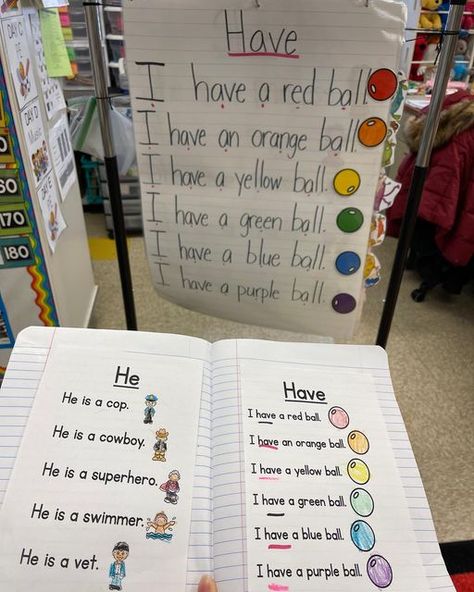 Have
I have a red ball.
I have an orange ball
I have a yellow ball.
I have a green ball.
I have a blue ball.
I have a purple ball.
He
He is a cop.
He is a cowboy.
He is a superhero.
He is a swimmer.
He is a vet.
Have
I have a red ball.
I have an orange ball.
I have a yellow ball.
I have a green ball.
I have a blue ball.
I have a purple ball.
DAY D
Music
170
180